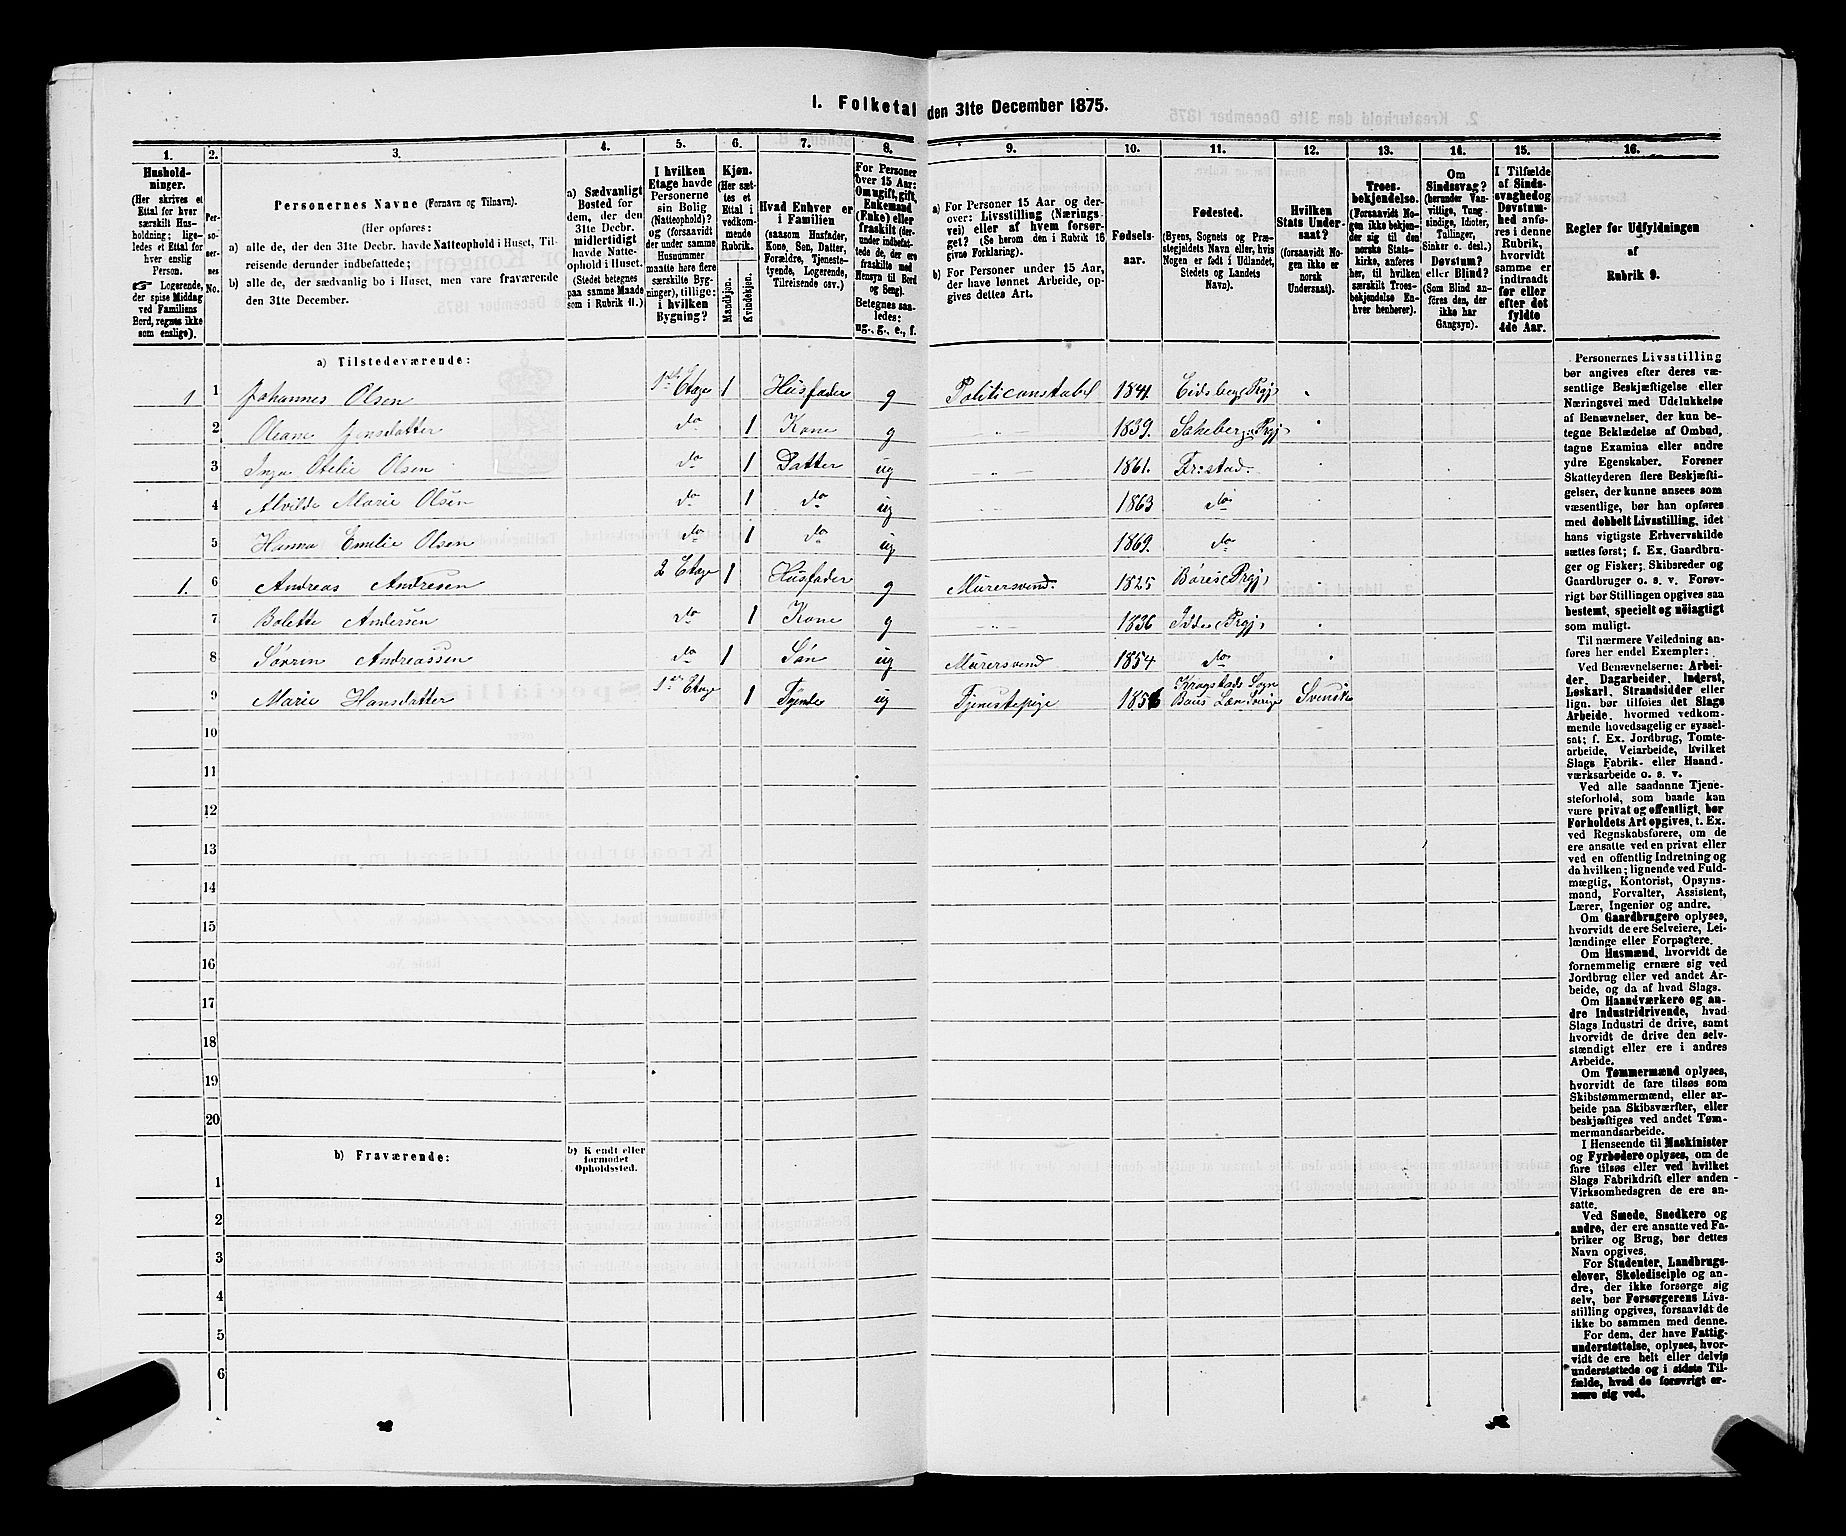 I. Folketal den 31te December 1875.
1.
2.
3.
4.
5.
6.
7.
8.
9.
10.
11.
12.
13.
14.
15.
16.
Hushold-
ninger.
(Her skrives et
Ettal for hver
særskilt Hus-
holdning; lige-
ledes et Ettal for
hver enslig
Person.
☞ Logerende,
der spise Middag
ved Familiens
Bord, regnes ikke
som enslige).
Per-
so-
ner-
nes
No.
Personernes Navne (Fornavn og Tilnavn).
(Her opføres:
a) alle de, der den 31te Decbr. havde Natteophold i Huset, Til-
reisende derunder indbefattede;
b) alle de, der sædvanlig bo i Huset, men vare fraværende
den 31te December.
a) Sædvanligt
Bosted for
dem, der den
31te Decbr.
midlertidigt
havde Natte-
ophold i Huset.
(Stedet betegnes
paa samme Maade
som i Rubrik 11.)
I hvilken
Etage havde
Personerne
sin Bolig
(Natteophold)?
og (forsaavidt
der under samme
Husnummer
maatte høre flere
særskilte Byg-
ninger), tillige:
i hvilken
Bygning?
Kjøn.
(Her sæt-
tes et
Ettal i
vedkom-
mende
Rubrik.
Mandkjøn.
Kvindekjøn.
Hvad Enhver er
i Familien
(saasom Husfader,
Kone, Søn, Datter,
Forældre, Tjeneste-
tyende, Logerende,
Tilreisende osv.)
For Personer
over 15 Aar:
Om ugift, gift,
Enkemand
(Enke) eller
fraskilt (der-
under indbefat-
tede de, der ere
fraskilte med
Hensyn til Bord
og Seng).
Betegnes saa-
ledes:
ug., g., e., f.
a) For Personer 15 Aar og der-
over: Livsstilling (Nærings-
vei) eller af hvem forsør-
get? (Se herom den i Rubrik 16
givne Forklaring).
b) For Personer under 15 Aar,
der have lønnet Arbeide, op-
gives dettes Art.
Fødsels-
aar.
Fødested.
(Byens, Sognets og Præ-
stegjeldets Navn eller, hvis
Nogen er født i Udlandet,
Stedets og Landets
Navn).
Hvilken
Stats Under-
saat?
(forsaavidt No-
gen ikke er
norsk
Undersaat).
Troes-
bekjendelse.
(Forsaavidt No-
gen ikke bekjen-
der sig til den
norske Stats-
kirke, anføres
her, til hvilken
særskilt Troes-
bekjendelse En-
hver henhører).
Om
Sindssvag?
(herunder Van-
vittige, Tung-
sindige, Idioter,
Tullinger,
Sinker o. desl.)
Døvstum?
eller Blind?
(Som Blind an-
føres den, der
ikke har
Gangsyn).
I Tilfælde
af Sinds-
svaghed og
Døvstum-
hed anfø-
res i denne
Rubrik,
hvorvidt
samme er
indtraadt
før eller
efter det
fyldte
4de Aar.
Regler for Udfyldningen
af
Rubrik 9.
a) Tilstedeværende:
1 1 Johannes Olsen 1ste Etage 1 Husfader g Politiconstabel 1841. Eidsberg Prgj
2 Oleane Jensdatter do 1 Kone g 1839. Prgj
3 Inga Otelie Olsen do 1 Datter ug 1861. Fr:stad.
4 Alvilde Marie Olsen do 1 do ug 1863 do
5 Hanna Emilie Olsen do 1 do ug 1869. do
1. 6 Andreas Andresen 2 Etage 1 Husfader g Murersvend. 1825 Prgj
7 Bolette Andersen do 1 Kone g 1836 Idde Prgj
8 Sørren Andreassen do 1 Søn ug Murersvend 1854 do
9 Marie Hansdatter 1ste Etage 1 Tyende ug Tjenestepige 1856 Krogstads Sogn
Svensk
10
11
12
13
14
15
16
17
18
19
20
b) Fraværende:
b) Kjendt eller
formodet
Opholdssted.
1
2
3
4
5
6
Personernes Livsstilling
bør angives efter deres væ-
sentlige Beskjæftigelse eller
Næringsvei med Udelukkelse
af Benævnelser, der kun be-
tegne Beklædelse af Ombud,
tagne Examina eller andre
ydre Egenskaber. Forener
Skatteyderen flere Beskjæfti-
gelser, der kunne ansees som
væsentlige, bør han opføres
med dobbelt Livsstilling, idet
hans vigtigste Erhvervskilde
sættes først; f. Ex. Gaardbru-
ger og Fisker; Skibsreder og
Gaardbruger o. s. v. Forøv-
rigt bør Stillingen opgives saa
bestemt, specielt og nøiagtigt
som muligt.
Til nærmere Veiledning an-
føres her endel Exempler:
Ved Benævnelserne: Arbei-
der, Dagarbeider, Inderst,
Løskarl, Strandsidder eller
lign. bør tilføies det Slags
Arbeide, hvormed vedkom-
mende hovedsagelig er syssel-
sat; f. Ex. Jordbrug, Tomte-
arbeide, Veiarbeide, hvilket
Slags Fabrik- eller Haand-
værksarbeide o. s. v.
Ved alle saadanne Tjene-
steforhold, som baade kan
være privat og offentligt, bør
Forholdets Art opgives, t. Ex.
ved Regnskabsførere, om de
ere ansatte ved en privat eller
ved en offentlig Indretning og
da hvilken; lignende ved Fuld-
mægtig, Kontorist, Opsyns-
mand, Forvalter, Assistent,
Lærer, Ingeniør og andre.
Om Gaardbrugere oplyses,
hvorvidt de ere Selveiere, Lei-
lændinge eller Forpagtere.
Om Husmænd, hvorvidt de
fornemmelig ernære sig ved
Jordbrug eller ved andet Ar-
beide, og da af hvad Slags.
Om Haandværkere og an-
dre Industridrivende, hvad
Slags Industri de drive, samt
hvorvidt de drive den selv-
stændigt eller ere i andres
Arbeide.
Om Tømmermænd oplyses,
hvorvidt de fare tilsøs som
Skibstømmermænd, eller ar-
beide paa Skibsværfter, eller
beskjæftiges ved andet Tøm-
mermandsarbeide.
I Henseende til Maskinister
og Fyrbødere oplyses, om de
fare tilsøs eller ved hvilket
Slags Fabrikdrift eller anden
Virksomhedsgren de ere an-
satte.
Ved Smede, Snedkere og
andre, der ere ansatte ved Fa-
briker og Brug, bør dettes
Navn opgives.
For Studenter, Landbrugs-
elever, Skoledisciple og an-
dre, der ikke forsørge sig
selv, bør Forsørgerens Livs-
stilling opgives, forsaavidt de
ikke bo sammen med denne.
For dem, der have Fattig-
understøttelse, oplyses, hvor-
vidt de ere helt eller delvis
understøttede og i sidste Til-
fælde, hvad de forøvrigt er-
nære sig ved.